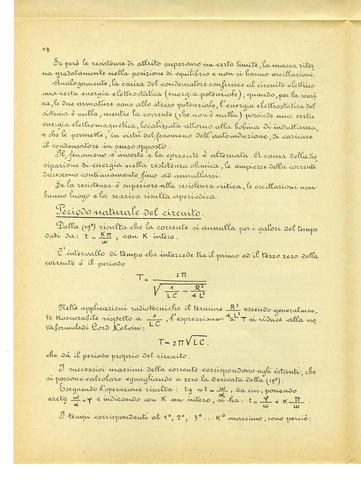 18
Se però le resistenze di attrito superano un certo limite, la massa ritor
na gradatamente nella posizione di equilibrio e non si hanno oscillazioni.
Analogamente, la carica del condensatore conferisce al circuito elettrico
una certa energia elettrostatica (energia potenziale); quando, per la scari
ca, le due armature sono allo stesso potenziale, l'energia elettrostatica del
sistema è nulla, mentre la corrente (che non è nulla) possiede una certa
energia elettromagnetica, localizzata attorno alla bobina di induttanza,
e che le permette, in virtù del fenomeno dell'autoinduzione, di caricare
il condensatore in senso opposto.
Il fenomeno s'inverte e la corrente è alternata. A causa della dis
sipazione di energia nella resistenza ohmica, le ampiezze della corrente
decrescono continuamente fino ad annullarsi.
Se la resistenza è superiore alla resistenza critica, le oscillazioni non
hanno luogo e la scarica risulta aperiodica.
Periodo naturale del circuito.
Dalla (19) risulta che la corrente si annulla per i valori del tempo
dati da: t = Kπ/ω, con K intero.
L'intervallo di tempo che intercede tra il primo ed il terzo zero della
corrente è il periodo
T = 2π / √(1/LC − R²/4L²)
Nelle applicazioni radiotecniche il termine R²/4L² essendo generalmen,
te trascurabile rispetto a 1/LC, l'espressione T si riduce alla
formula di Lord Kelvin:
T = 2π√LC.
che dà il periodo proprio del circuito.
I successivi massimi della corrente corrispondono agli istanti, che
si possono calcolare eguagliando a zero la derivata della (19).
Eseguendo l'operazione risulta: tg ωt = ω/α, da cui, ponendo
arctg ω/α = φ e indicando con K un intero, si ha: t = φ/ω + K π/ω.
I tempi corrispondenti al 1°, 2°, 3° ... K° massimo, sono perciò: